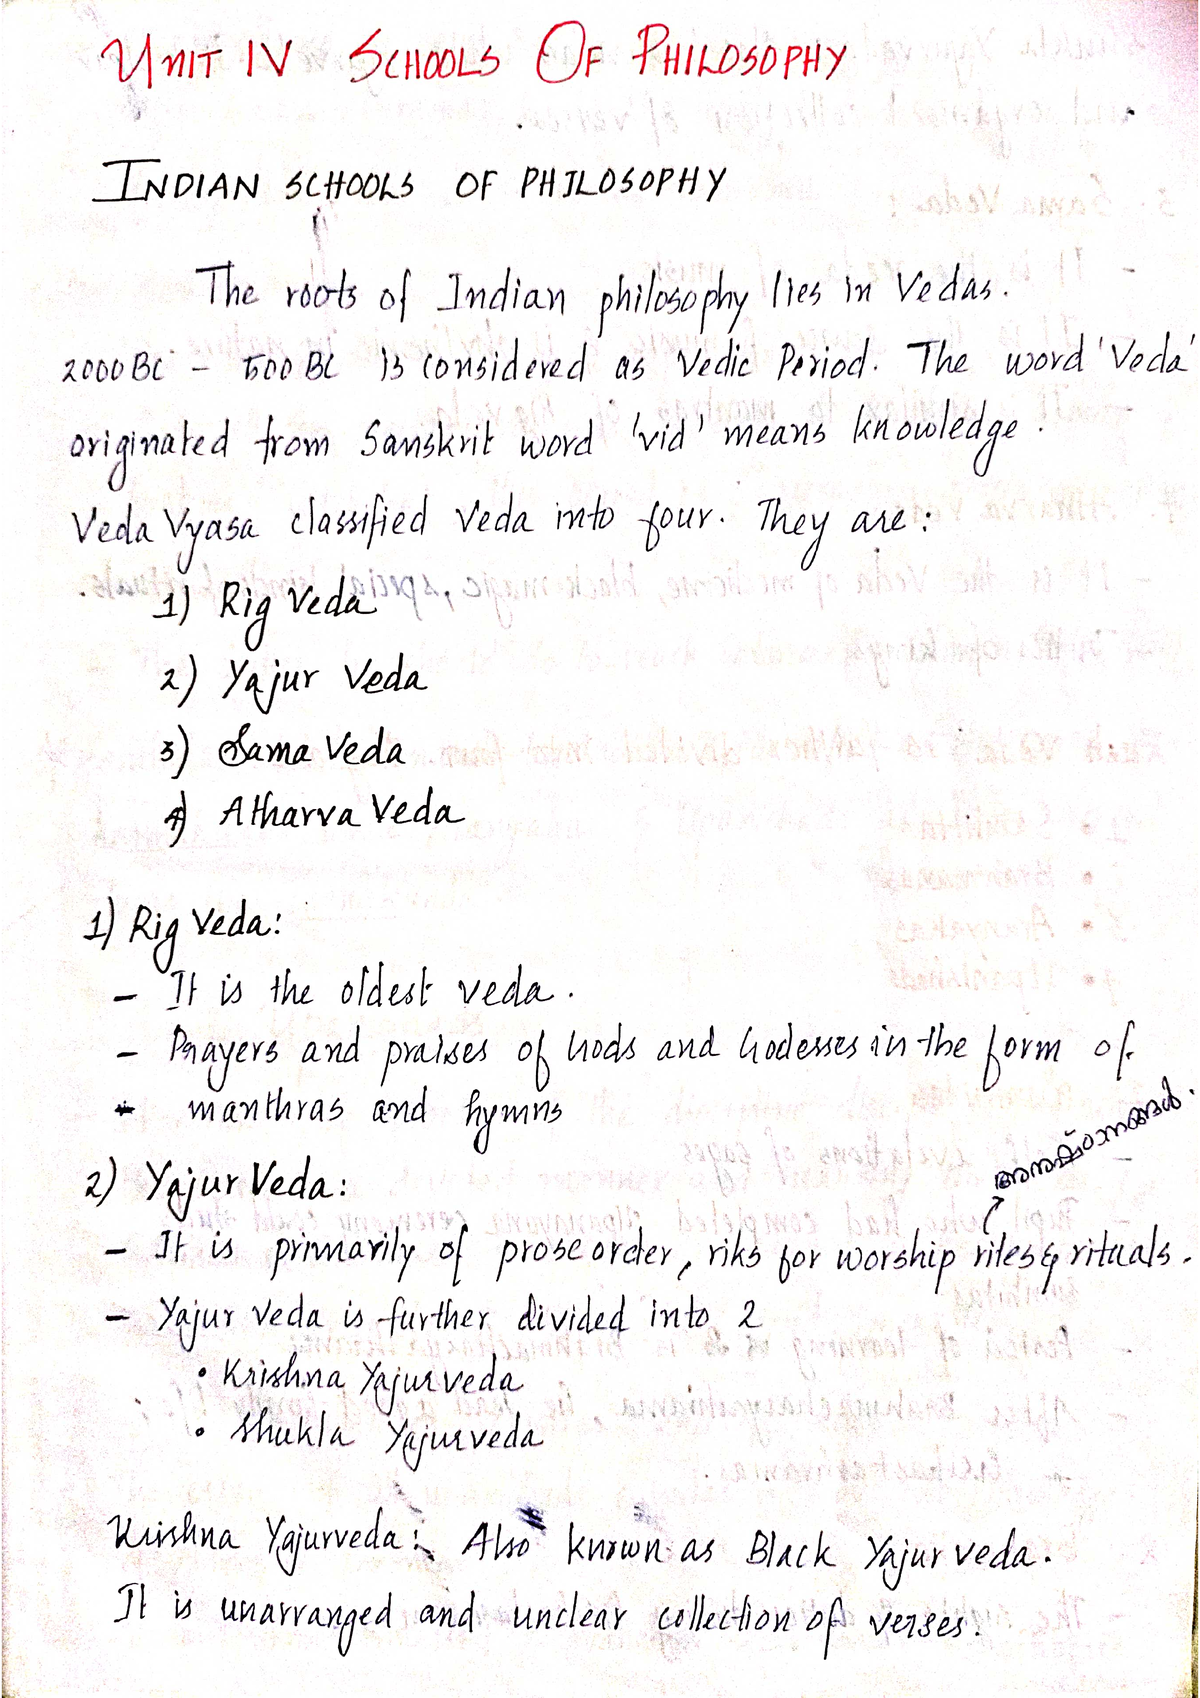 UNIT IV SCHOOLS OF PHILOSOPHY
INDIAN SCHOOLS OF PHILOSOPHY
The roots of Indian philosophy lies in Vedas.
2000 BC - 500 BC is considered as Vedic Period. The word 'Veda'
originated from Sanskrit word 'vid' means knowledge.
Veda Vyasa classified Veda into four. They are:
1) Rig Veda
2) Yajur Veda
3) Sama Veda
4) Atharva Veda
1) Rig Veda:
- It is the oldest veda.
- Prayers and praises of Gods and Godesses in the form of
manthras and hymns
അനുഷ്ഠാനങ്ങൾ.
2) Yajur Veda:
- It is primarily of prose order, riks for worship rites & rituals.
- Yajur veda is further divided into 2
• Krishna Yajurveda
• Shukla Yajurveda
Krishna Yajurveda: Also known as Black Yajur veda.
It is unarranged and unclear collection of verses.